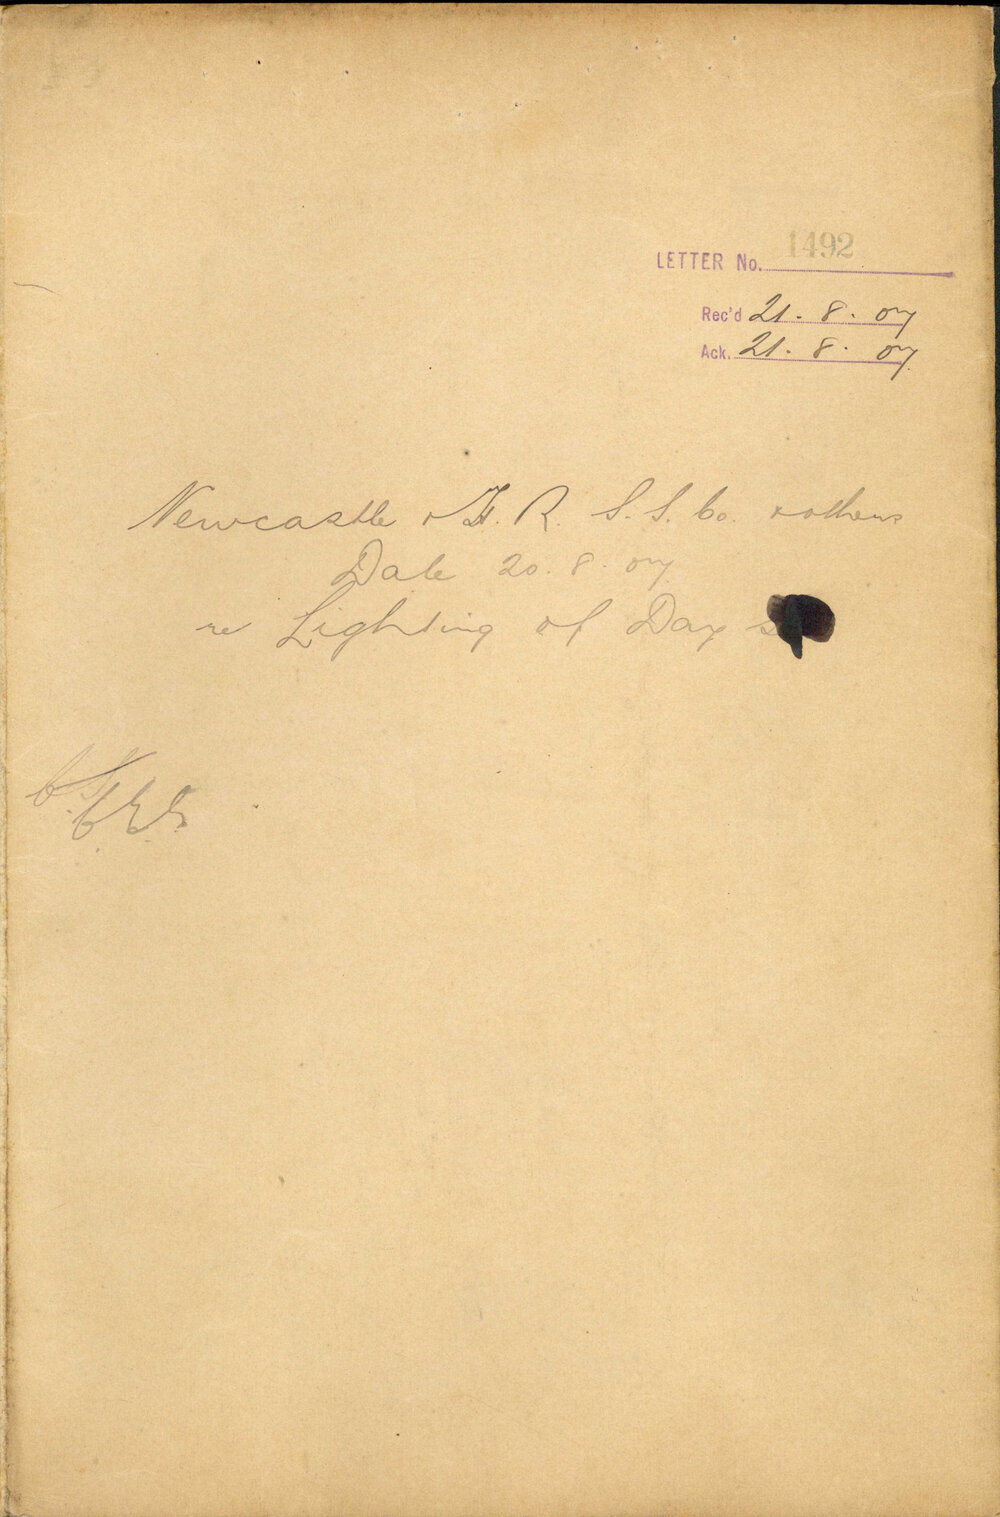 LETTER No. 1492
Rec'd 21. 8. 07
Ack. 21. 8. 07
Newcastle & H. R. S. S. Co. & others
Date 20. 8. 07
re Lighting of Day